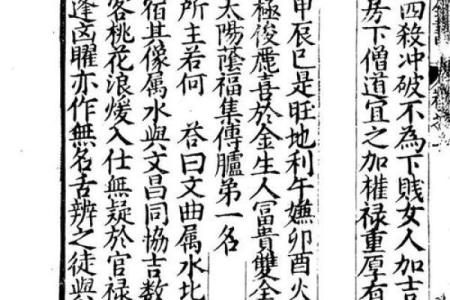 四殺冲破不為下賤女人加吉
房下僧道宜之加權祿重厚有
甲辰巳是旺地利午嫵卯酉火
極俊麗喜於金生人冨貴雙全
太陽蔭福集傳臚第一名
所主若何 荅曰文曲属水北
宿其像属水與文昌同協吉数
客桃花浪煖入仕無疑於官禄
逢凶曜亦作無名舌辨之徒與